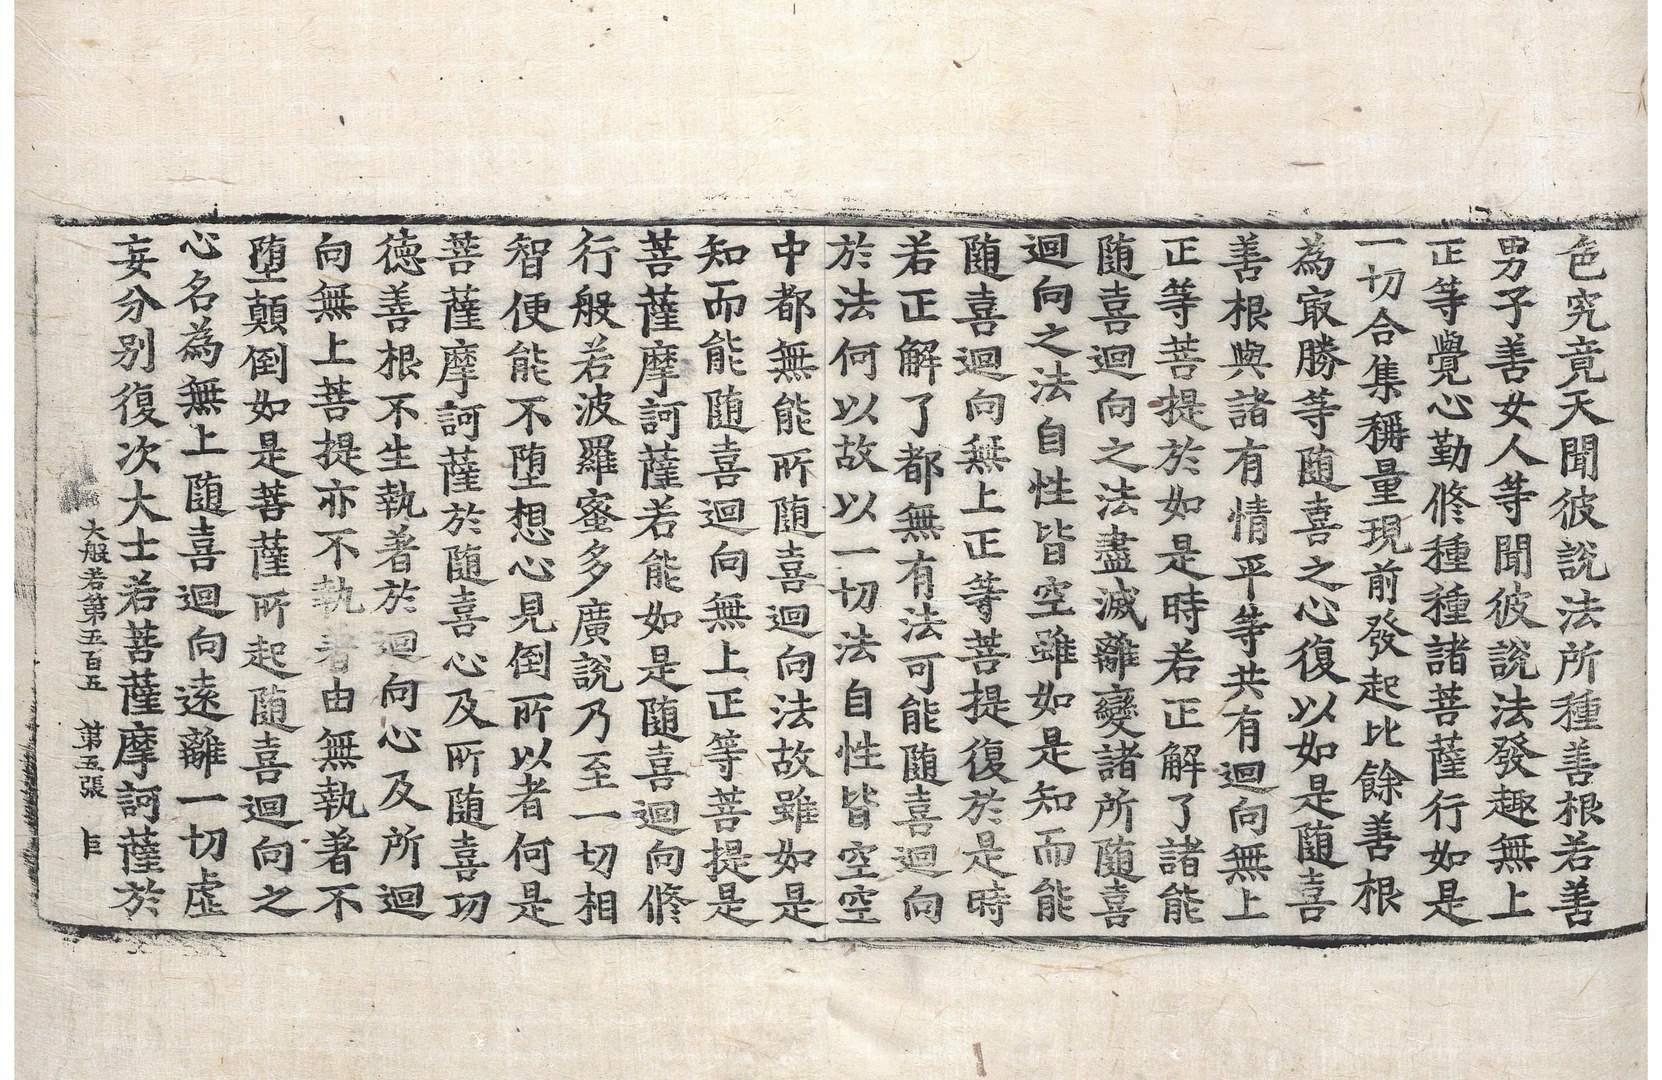 色究竟天聞彼說法所種善根若善
男子善女人等聞彼說法發趣無上
正等覺心勤修種種諸菩薩行如是
一切合集稱量現前發起比餘善根
為㝡勝等随喜之心復以如是随喜
善根與諸有情平等共有迴向無上
正等菩提於如是時若正解了諸能
随喜迴向之法盡滅離變諸所随喜
迴向之法自性皆空雖如是知而能
随喜迴向無上正等菩提復於是時
若正解了都無有法可能随喜迴向
於法何以故以一切法自性皆空空
中都無能所随喜迴向法故雖如是
知而能随喜迴向無上正等菩提是
菩薩摩訶薩若能如是随喜迴向修
行般若波羅蜜多廣說乃至一切相
智便能不堕想心見倒所以者何是
菩薩摩訶薩於随喜心及所随喜功
德善根不生執著於迴向心及所迴
向無上菩提亦不執著由無執著不
堕顛倒如是菩薩所起随喜迴向之
心名為無上随喜迴向遠離一切虛
妄分別復次大士若菩薩摩訶薩於
大般若第五百五 第五張